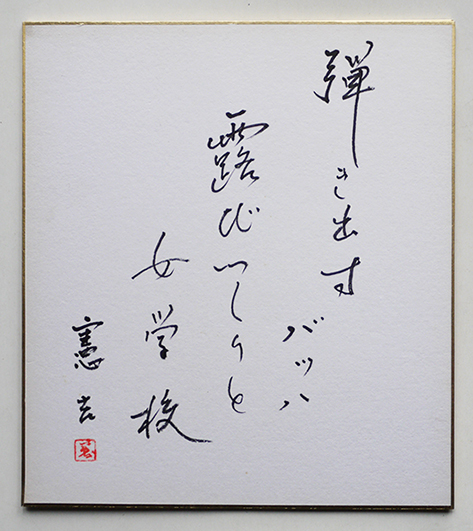 弾き出す
バッハ
露びつしりと
女学校
憲吉